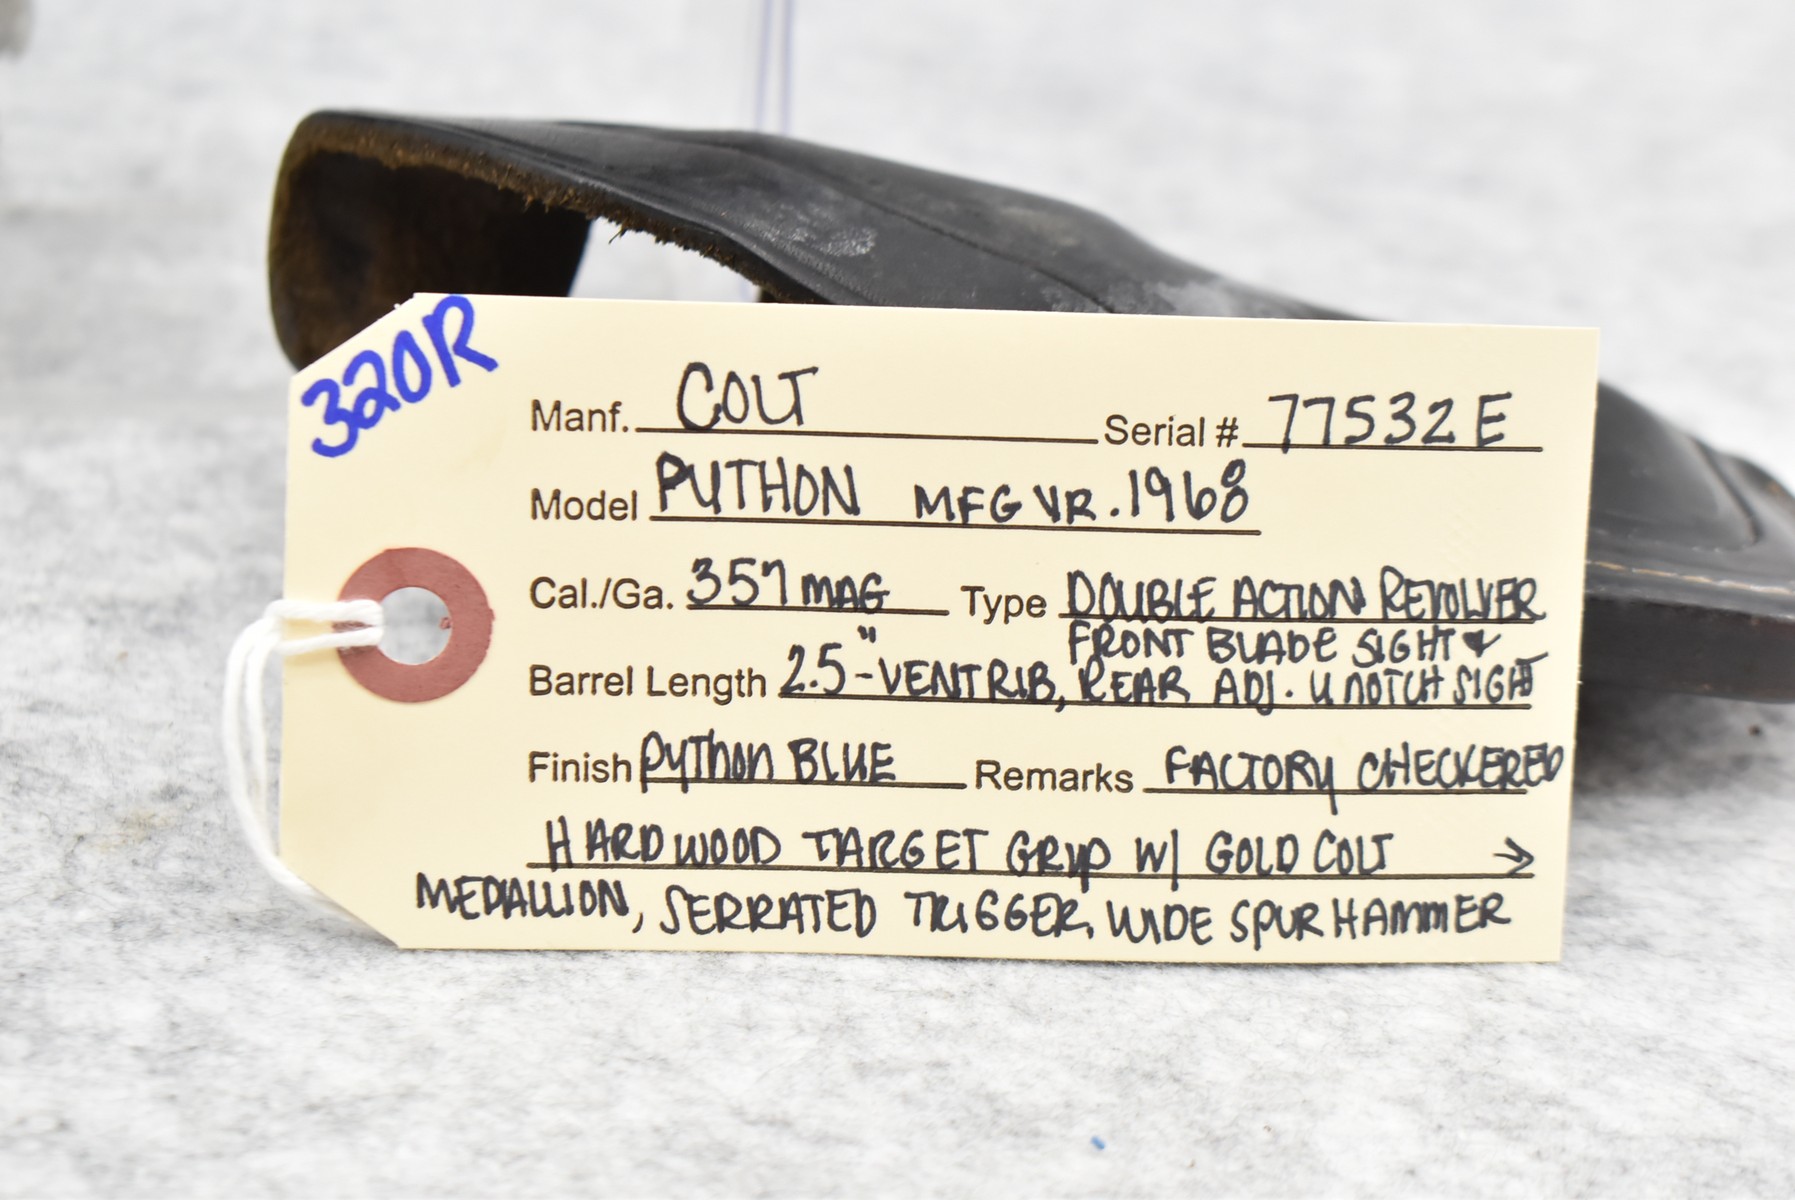 320R
Manf. COLT Serial # 77532E
Model PYTHON MFG YR. 1968
Cal./Ga. 357 MAG Type DOUBLE ACTION REVOLVER
FRONT BLADE SIGHT &
Barrel Length 2.5"-VENT RIB, REAR ADJ. U NOTCH SIGHT
Finish PYThon BLUE Remarks FACTORY CHECKERED
HARDWOOD TARGET GRIP W/ GOLD COLT →
MEDALLION, SERRATED TRIGGER, WIDE SPUR HAMMER